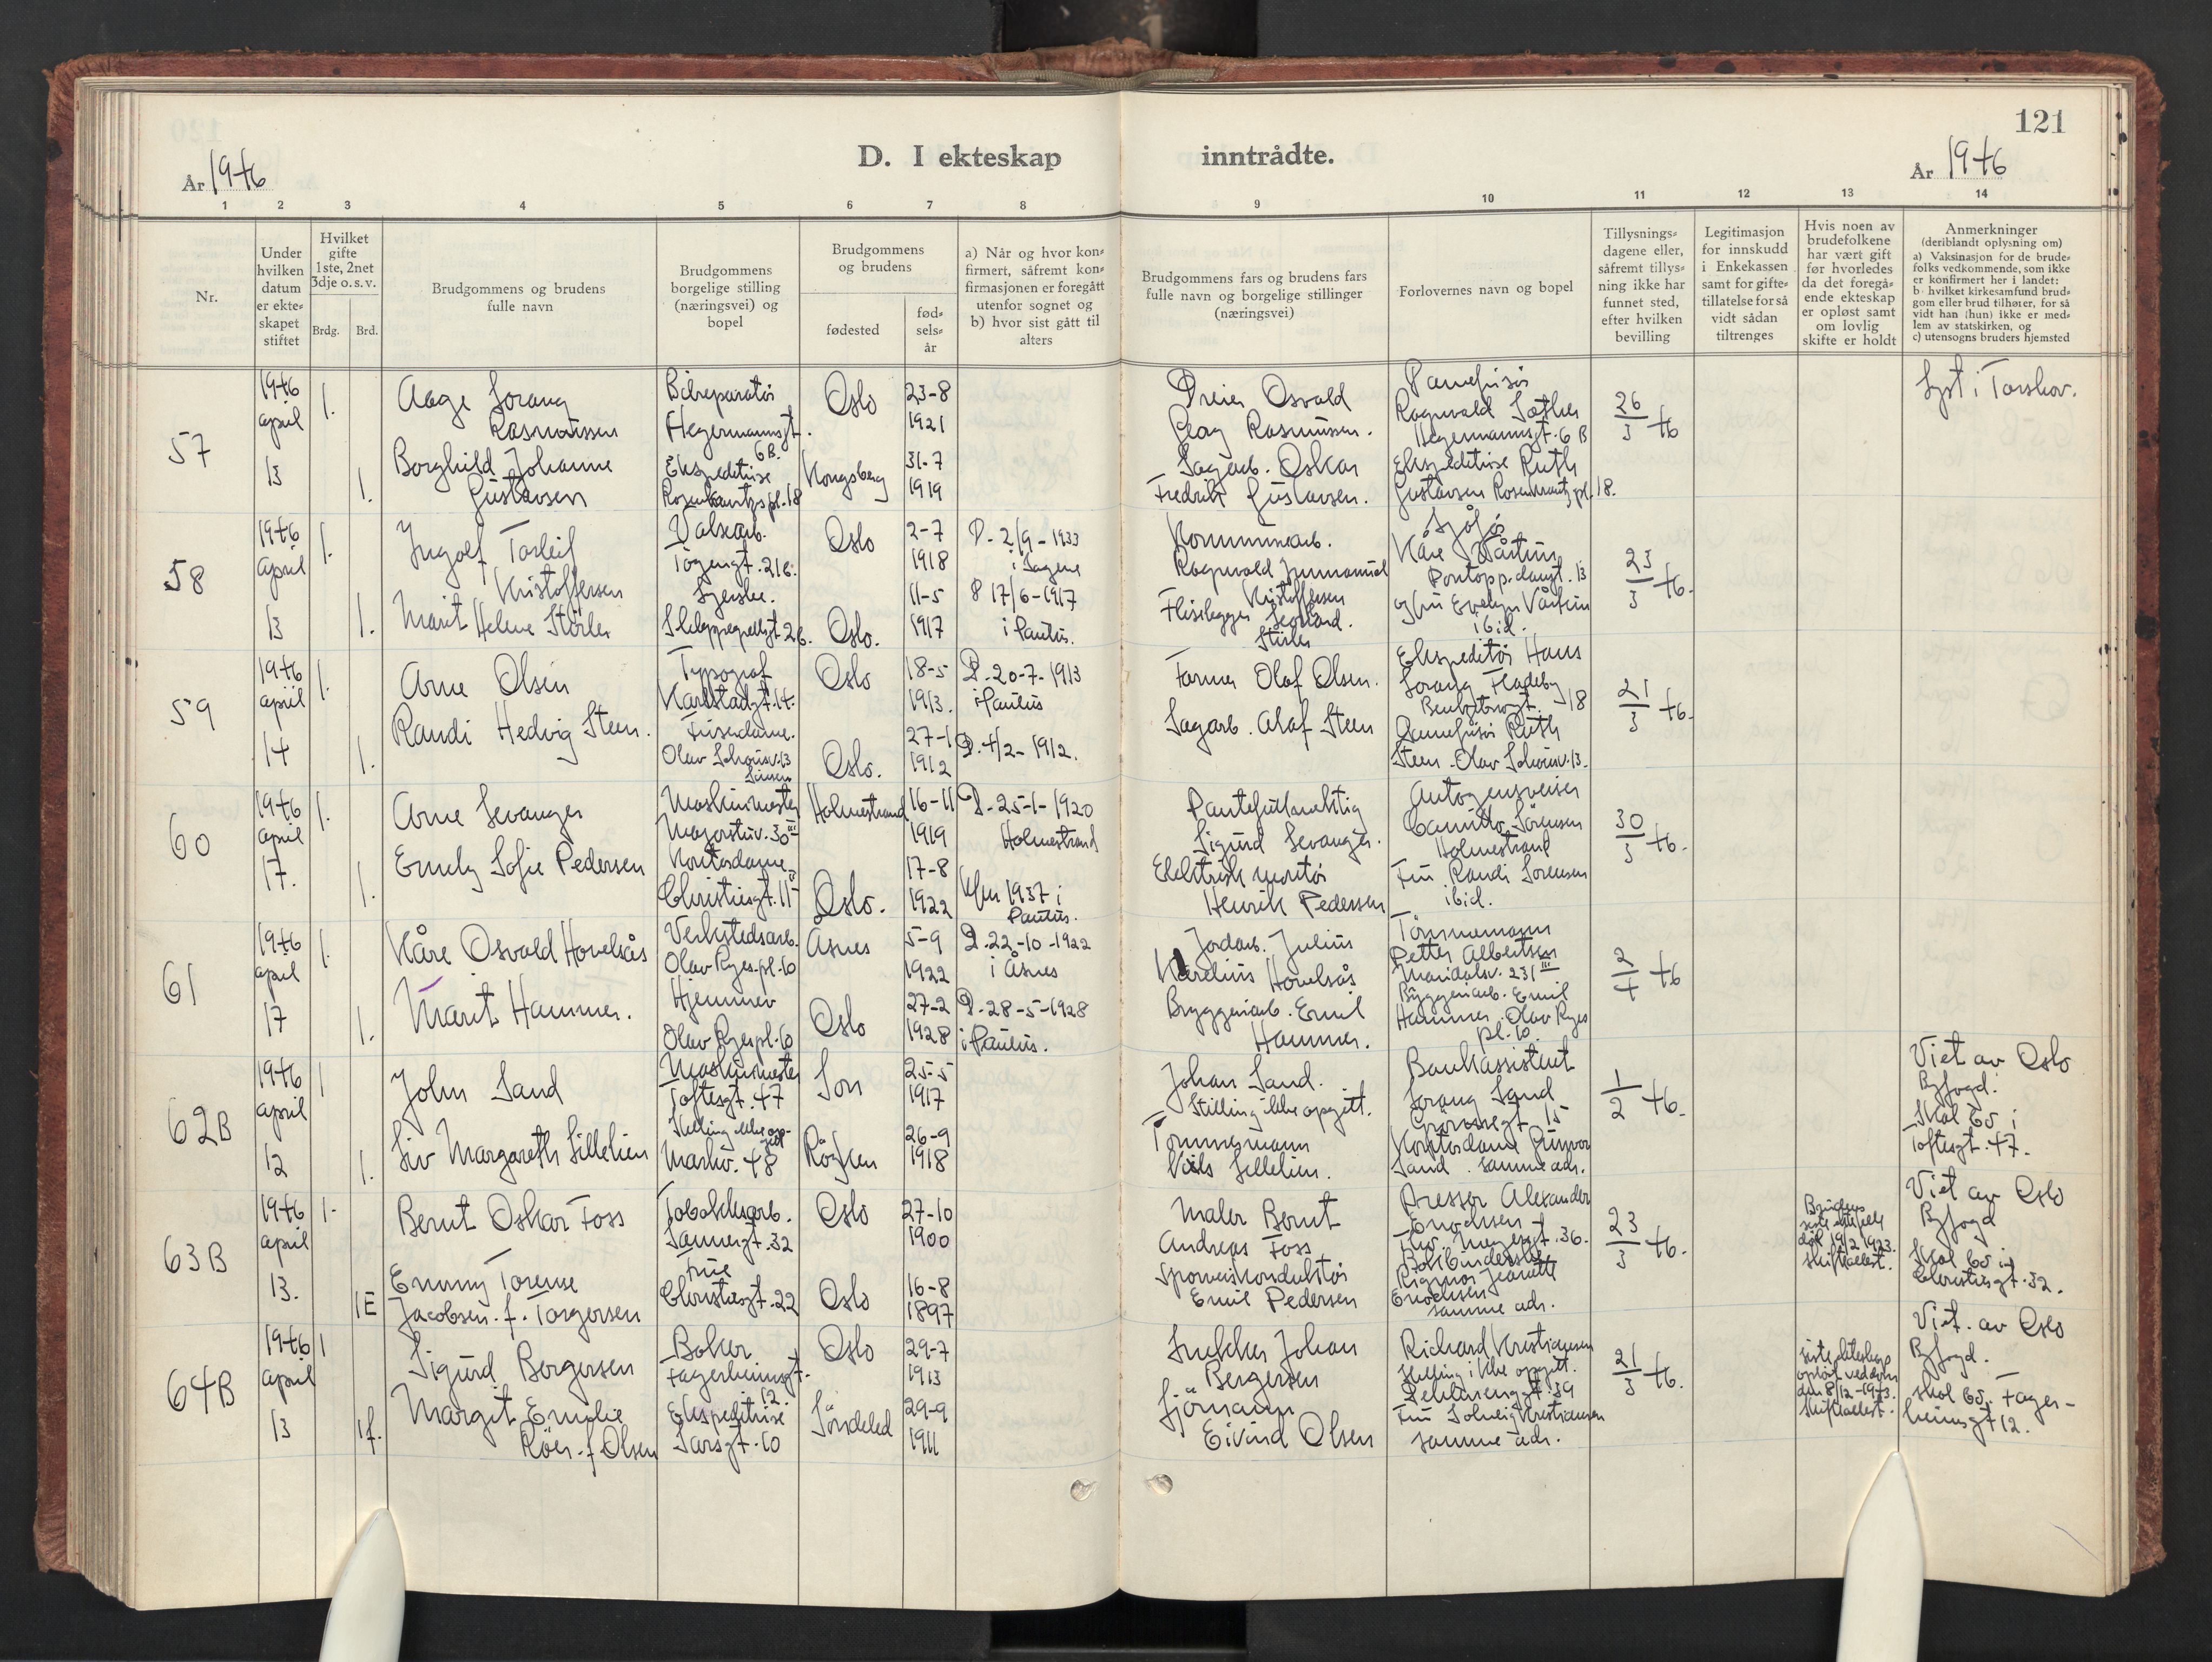 121
D. I ekteskap inntrådte.
År 1946
År 1946
1 2 3 4 5 6 7 8 9 10 11 12 13 14
Nr.
Under hvilken datum er ekte-skapet stiftet
Hvilket gifte 1ste, 2net 3dje o. s. v.
Brdg. Brd.
Brudgommens og brudens fulle navn
Brudgommens borgelige stilling (næringsvei) og bopel
Brudgommens og brudens
fødested
fød-sels-år
a) Når og hvor kon-firmert, såfremt kon-firmasjonen er foregått utenfor sognet og b) hvor sist gått til alters
Brudgommens fars og brudens fars fulle navn og borgelige stillinger (næringsvei)
Forlovernes navn og bopel
Tillysnings-dagene eller, såfremt tillys-ning ikke har funnet sted, efter hvilken bevilling
Legitimasjon for innskudd i Enkekassen samt for gifte-tillatelse for så vidt sådan tiltrenges
Hvis noen av brudefolkene har vært gift før hvorledes da det foregå-ende ekteskap er opløst samt om lovlig skifte er holdt
Anmerkninger (deriblandt oplysning om) a) Vaksinasjon for de brude-folks vedkommende, som ikke er konfirmert her i landet; b) hvilket kirkesamfund brud-gom eller brud tilhører, for så vidt han (hun) ikke er med-lem av statskirken, og c) utensogns bruders hjemsted
57
1946 april 13
1.
Aage Sorang Rasmussen
Bilreparatør Hegermannsgt. 6B.
Oslo
23-8 1921
Dreier Osvald Georg Rasmussen.
Ragnvald Sæther Hegermannsgt. 6 B
26/3 46
Lyst i Torshov.
1.
Borghild Johanne Gustavsen
Ekspeditrise Rosenkrantzpl. 18
Kongsberg
31-7 1919
Sagarb. Oskar Fredrik Gustavsen.
Ekspeditrise Ruth Gustavsen Rosenkrantzpl. 18.
58
1946 april 13
1.
Ingolf Torleif Kristoffersen
Valsearb. Togengt. 21B.
Oslo
2-7 1918
D. 2/9-1933 i Sagene
Kommunearb. Ragnvald Immanuel Kristoffersen
Sjåfør Kåre Vårtun Pontoppidansgt. 13
23/3 46.
1.
Marit Helene Störler
Oslo.
11-5 1917
17/6-1917 i Paulus.
og fru Evelyn Vårtun ibid.
59
1946 april 14
1.
Arne Olsen
Typograf Karlstadgt. 14.
Oslo
18-5 1913.
D. 20-7-1913 i Paulus
Former Olof Olsen.
Ekspeditør Hans Sorang Fladeby 18
21/3 46.
1.
Randi Hedvig Steen.
Frisørdame. Olav Schousv. 13 Sinsen
Oslo.
27-1 1912
D. 4/2-1912.
Sagarb. Olaf Steen
Ruth Steen - Olav Schousv. 13.
60
1946 april 17.
1.
Arne Levanger
Maskinmester Majorstuv. 30 III
Holmestrand
16-11 1919
D. 25-1-1920 Holmestrand
Pantefullmektig Sigurd Levanger.
Autogensveiser Camillo Sörensen Holmestrand
30/3 46.
1.
Emely Sofie Pedersen
Kontordame Christiesgt. 11
Oslo.
17-8 1922
Kfm 1937 i Paulus.
Elektrisk montör Henrik Pedersen
Fru Randi Sorensen ibid.
61
1946 april 17
1.
Kåre Osvald Hovelsås
Verkstedsarb. Olav Ryes-pl. 10
Åsnes
5-9 1922
D. 22-10-1922 i Åsnes
Jordarb. Julius Karelius Hovelsås
Tömmermann Petter Albertsen Maridalsv. 231 III
2/4 46
1.
Marit Hammer.
Hjemmev Olav Ryespl. 10
Oslo
27-2 1928
D. 28-5-1928 i Paulus.
Bryggeriarb. Emil Hammer.
Bryggeriarb. Emil Hammer. Olav Ryes pl. 10.
62B
1946 april 12
1
John Sand
Maskinmester Toftesgt. 47
Son
25-5 1917
Johan Sand. Stilling ikke opgitt.
Bankassistent Sorang Sand 15
1/2 46.
Viet av Oslo Byfogd. Skal bo i Toftesgt. 47.
1.
Siv Margareth Lillelien
Stilling ikke op-gitt Markv. 48
Röyken
26-9 1918
Tömmermann Nils Lillelien.
Kontordame Gunvor Sand. samme adr.
63B
1946 april 13.
1.
Bernt Oskar Foss
Tobakksarb. Sannergt. 32
Oslo
27-10 1900
Maler Bernt Andreas Foss
Dresser Alexander Enochsen Thv. Meyersgt. 36.
23/3 46.
Brudens siste ektefelle død 19/2 1923. skifteattest.
Viet av Oslo Byfogd Skal bo i Christiesgt. 32.
1E
Emmy Torene Jacobsen. f. Torgersen
Frue Christiesgt. 22
Oslo
16-8 1897
Sporveiskonduktör Emil Pedersen
Bokbinderske Ragnar Jeanette Enochsen samme adr.
64B
1946 april 13
1
Sigurd Bergersen
Baker Fagerheimsgt. 12.
Oslo
29-7 1913
Snekker Johan Bergersen
Richard Kristiansen stilling ikke oppgitt. 39
21/3 46.
siste ekteskap oplöst ved dom den 8/12-1943. skifteattest.
Viet. av Oslo Byfogd. skal bo. Fager-heimsgt 12.
1f.
Margit Emelie Röer. f Olsen
Ekspeditrise Sarsgt. 10
Söndeled
29-9 1911
Sjömann Eivind Olsen
Fru Solveig Kristiansen samme adr.